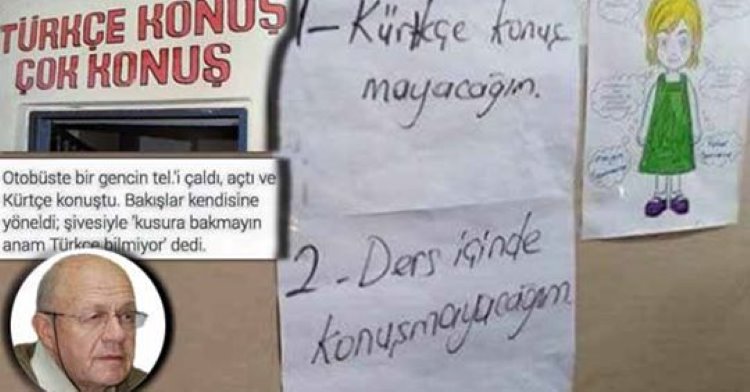 TÜRKÇE KONUŞ
ÇOK KONUŞ
Otobüste bir gencin tel.'i çaldı, açtı ve
Kürtçe konuştu. Bakışlar kendisine
yöneldi; şivesiyle 'kusura bakmayın
anam Türkçe bilmiyor' dedi.
1- Kürtkçe konuş
mayacağım.
2- Ders içinde
konuşmayacağım